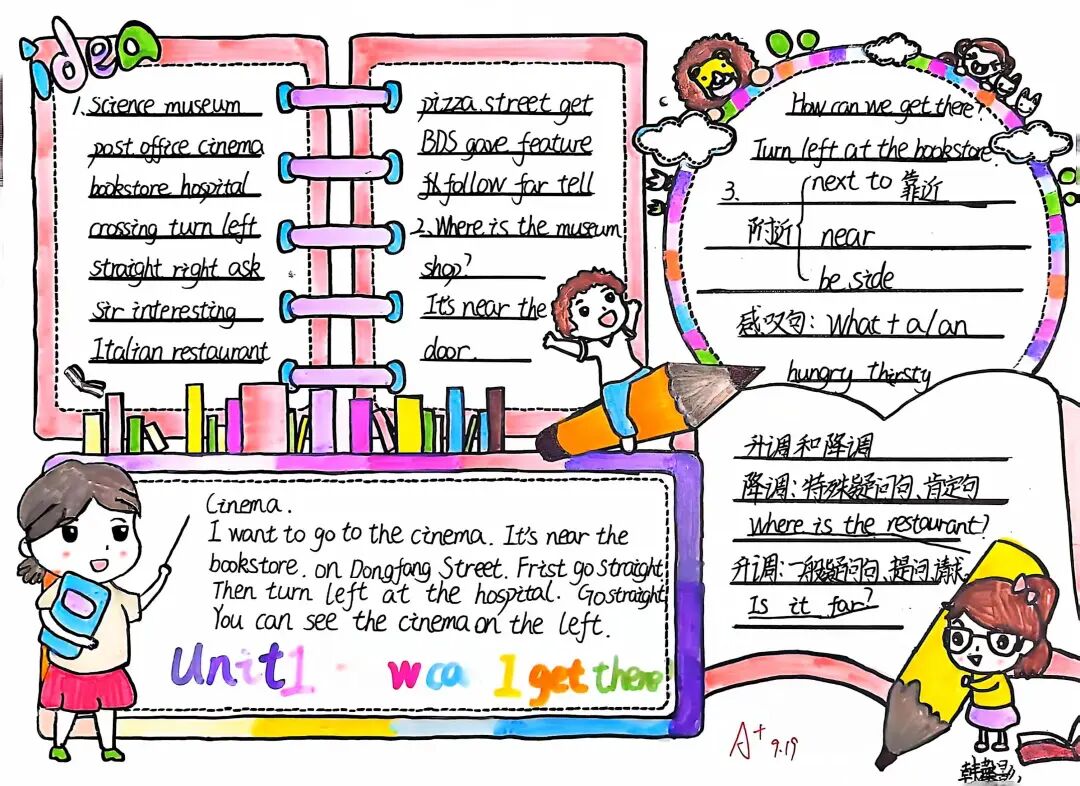 idea
1. Science museum
post office cinema
bookstore hospital
crossing turn left
straight right ask
sir interesting
Italian restaurant
pizza street get
gave feature
follow far tell
2. Where is the museum
shop?
It's near the
door.
How can we get there?
Turn left at the bookstore.
3.
next to 靠近
附近
near
be side
感叹句: What+a/an
hungry thirsty
升调和降调
降调: 特殊疑问句、肯定句
Where is the restaurant?
升调: 一般疑问句、提问、请求
Is it far?
Cinema.
I want to go to the cinema. It's near the
bookstore. on Dongfang Street. Frist go straight.
Then turn left at the hospital. Go straight.
You can see the cinema on the left.
Unit1 wca I get there
A+ 9.19